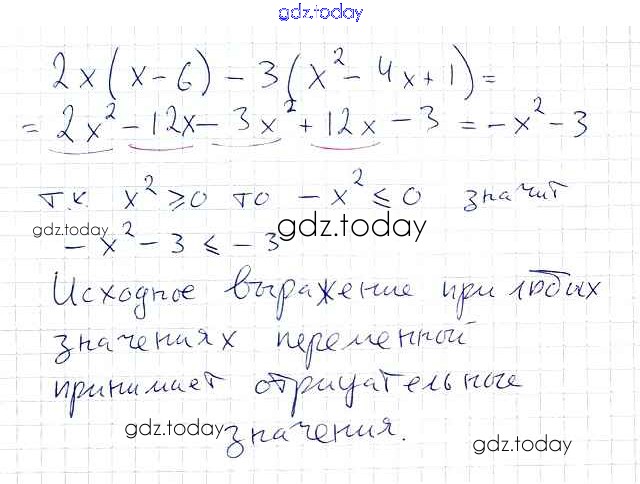 gdz.today
2x(x-6) - 3(x² - 4x + 1) =
= 2x² - 12x - 3x² + 12x - 3 = -x² - 3
т.к. x² ⩾ 0 то -x² ⩽ 0 значит
gdz.today
gdz.today
-x² - 3 ⩽ -3
Исходное выражение при любых
значениях переменной
принимает отрицательные
gdz.today
значения.
gdz.today